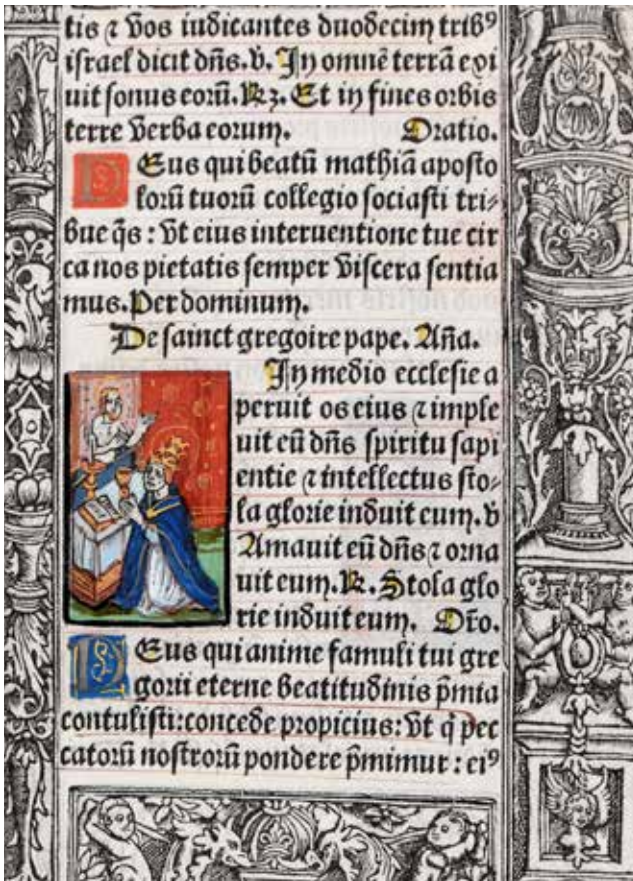 tis ⁊ vos iudicantes duodecim tribꝰ
israel dicit dñs.v. In omnē terrā exi
uit sonus eorū.R̷ꝫ. Et in fines orbis
terre verba eorum. Oratio.
DEus qui beatū mathiā aposto
lorū tuorū collegio sociasti tri⸗
bue q̄s : vt eius interuentione tue cir
ca nos pietatis semper viscera sentia
mus. Per dominum.
De sainct gregoire pape. Aña.
In medio ecclesie a
peruit os eius ⁊ imple
uit eū dñs spiritu sapi
entie ⁊ intellectus sto⸗
la glorie induit eum. v
Amauit eū dñs ⁊ orna
uit eum. R̷. Stola glo
rie induit eum. Or̄o.
DEus qui anime famuli tui gre
gorii eterne beatitudinis p̄mia
contulisti:concede propicius: vt q̄ pec
catorū nostrorū pondere p̄mimur : eiꝰ